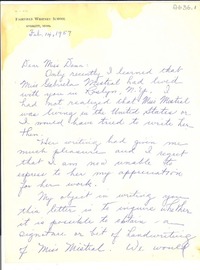 Feb. 14, 1957
Dear Miss Dana:
Only recently I learned that
Miss Gabriela Mistral had lived
with you in Roslyn, N.Y. I
had not realized that Miss Mistral
was living in the United States or
I would have tried to write her
then.
Her writing had given me
much pleasure and I regret
that I am now unable to
express to her my appreciation
for her work.
My object in writing you
this letter is to inquire whether
it is possible to obtain a
signature or bit of handwriting
of Miss Mistral. We would